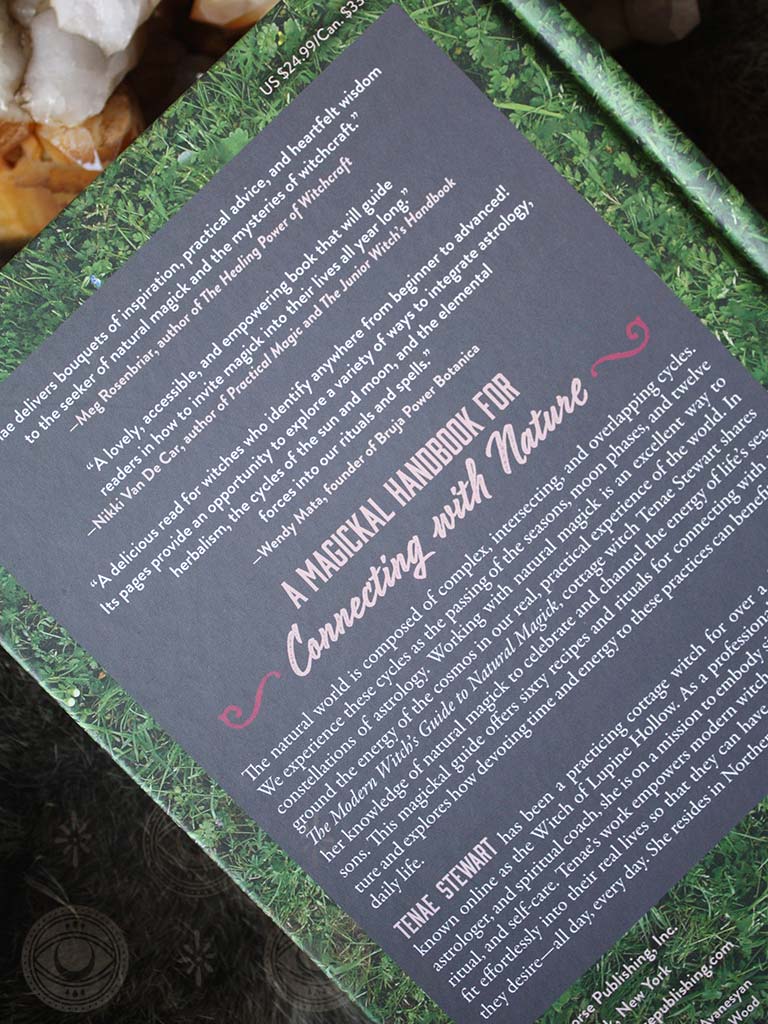 US $24.99/Can. $33
delivers bouquets of inspiration, practical advice, and heartfelt wisdom
to the seeker of natural magick and the mysteries of witchcraft.”
–Meg Rosenbriar, author of The Healing Power of Witchcraft
“A lovely, accessible, and empowering book that will guide
readers in how to invite magick into their lives all year long.”
–Nikki Van De Car, author of Practical Magic and The Junior Witch's Handbook
“A delicious read for witches who identify anywhere from beginner to advanced!
Its pages provide an opportunity to explore a variety of ways to integrate astrology,
herbalism, the cycles of the sun and moon, and the elemental
forces into our rituals and spells.”
–Wendy Mata, founder of Bruja Power Botanica
A MAGICKAL HANDBOOK FOR
Connecting with Nature
The natural world is composed of complex, intersecting, and overlapping cycles.
We experience these cycles as the passing of the seasons, moon phases, and twelve
constellations of astrology. Working with natural magick is an excellent way to
ground the energy of the cosmos in our real, practical experience of the world. In
The Modern Witch's Guide to Natural Magick, cottage witch Tenae Stewart shares
her knowledge of natural magick to celebrate and channel the energy of life's sea-
sons. This magickal guide offers sixty recipes and rituals for connecting with
ture and explores how devoting time and energy to these practices can benefi
daily life.
TENAE STEWART has been a practicing cottage witch for over a
known online as the Witch of Lupine Hollow. As a professional
astrologer, and spiritual coach, she is on a mission to embody
ritual, and self-care. Tenae's work empowers modern witch
fit effortlessly into their real lives so that they can have
they desire—all day, every day. She resides in North
rse Publishing, Inc.
New York
epublishing.com
Avanesyan
Wood